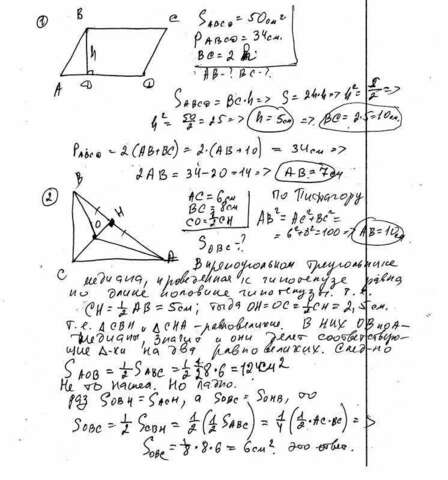 ①
B C
h
A D D
S_ABCD = 50см²
P_ABCD = 34см.
BC = 2 h
AB-? BC-?
S_ABCD = BC·h => S = 2h·h => h² = S/2 =>
h² = 50/2 = 25 => h = 5см => BC = 2·5 = 10см.
P_ABCD = 2(AB+BC) = 2·(AB+10) = 34см =>
2AB = 34-20 = 14 => AB = 7см
②
B
H
O
C A
AC = 6см
BC = 8см
CO = ½CH
S_OBC - ?
По Пифагору
AB² = AC² + BC² =
= 6² + 8² = 100 => AB = 10см
В прямоугольном треугольнике
медиана, проведенная к гипотенузе равна
по длине половине гипотенузы. т.е.
CH = ½ AB = 5см; тогда OH = OC = ½CH = 2,5см.
т.е. △CBH и △CHA - равновелики. В них OB и OA-
медианы, значит и они делят соответствую-
щие △-ки на два равновеликих. След-но
S_AOB = ½ S_ABC = ½ ½ 8·6 = 12см²
Не то нашел. Но ладно.
S_OBH = S_AOH, а S_OBC = S_OHB, то
S_OBC = ½ S_CBH = ½ (½ S_ABC) = ¼ (½ · AC·BC) =>
S_OBC = ⅛ · 8 · 6 = 6см². это ответ.